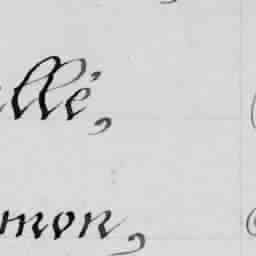 llé,
mon,